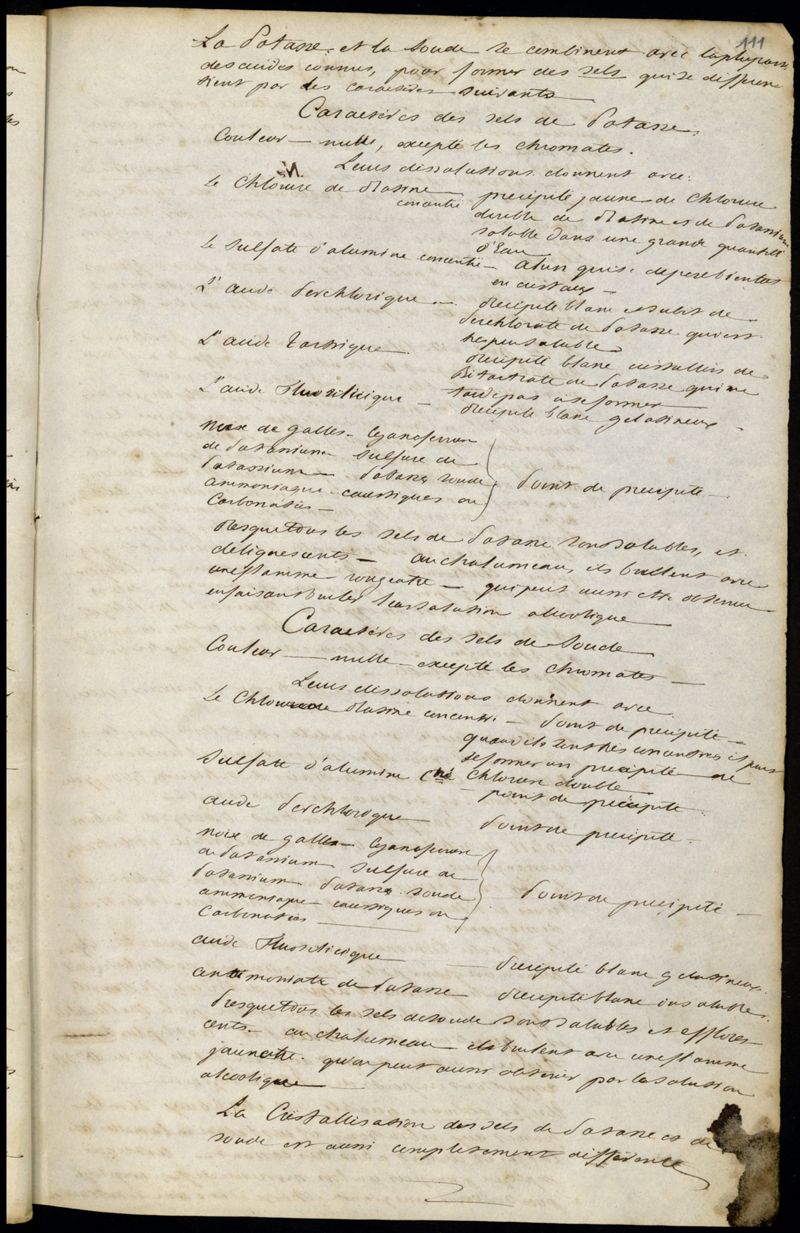 111
La Potasse et la Soude se combinent avec la plupart
des acides connus, pour former des sels qui se differen
tient par les caractères suivants
Caractères des sels de Potasse.
Couleur — nulle, excepté les chromates.
Leurs dissolutions donnent avec:
Le Chlorure de Platine concentré — precipité jaune de Chlorure
double de Platine et de Potassium
soluble dans une grande quantité
d'Eau
Le Sulfate d'alumine concentré — alun qui se depose bientot
en cristaux —
L'acide Perchlorique — Precipité blanc et subit de
Perchlorate de Potasse qui est
tres peu soluble
L'acide Tartrique — Precipité blanc cristallin de
Bitartrate de Potasse qui ne
tarde pas a se former
L'acide Fluosilicique — Precipité blanc gelatineux
Noix de galles — Cyanoferrure
de Potassium Sulfure de
Potassium — Potasse soude
ammoniaque caustiques ou
Carbonatés — Point de precipité —
Presque tous les sels de Potasse sont solubles, et
deliquescents — au chalumeau, ils brulent avec
une flamme rougeatre — qui peut aussi etre obtenue
en faisant bruler leur solution alcoolique
Caractères des sels de Soude
Couleur — nulle — excepté les chromates —
Leurs dissolutions donnent avec
Le Chlorure Platine concentré — Point de precipité —
quand ils sont tres concentrés il peut
se former un precipité de
Chlorure double
Sulfate d'alumine Cné — point de precipité
acide Perchlorique — Point de precipité.
Noix de galles — Cyanoferrure
de Potassium Sulfure de
Potassium Potasse soude
ammoniaque caustiques ou
Carbonatés — Point de precipité —
acide Fluosilicique — Precipité blanc gelatineux.
antimoniate de Potasse Precipité blanc insoluble.
Presque tous les sels de soude sont solubles et efflores
cents — au chalumeau ils brulent avec une flamme
jaunatre. qu'on peut aussi obtenir par la solution
alcoolique
La Cristallisation des sels de Potasse et de
soude est aussi completement differente